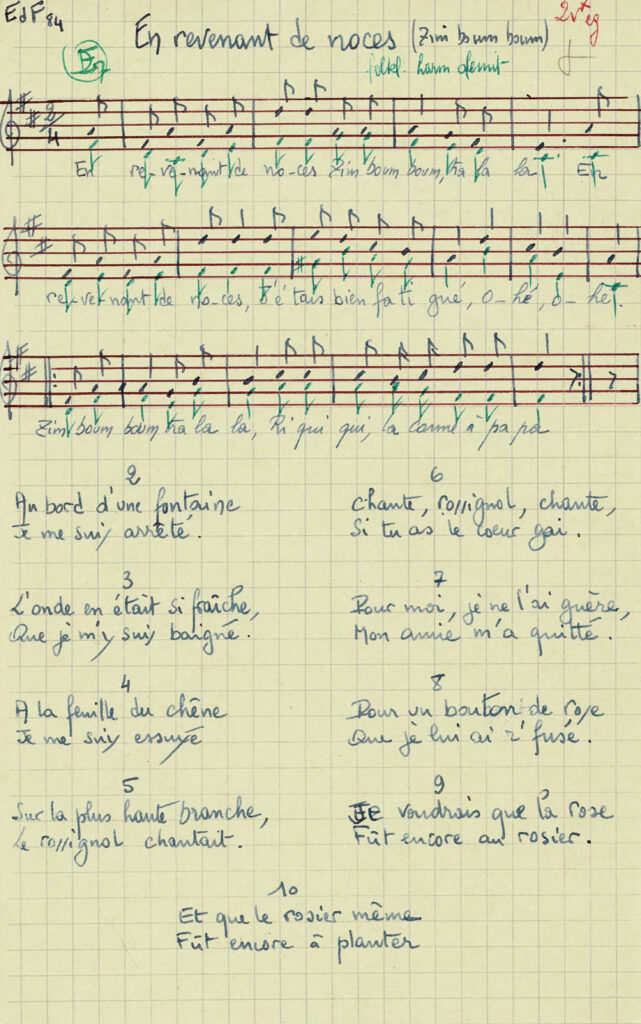 EdF 84
2v + eg
En revenant de noces (Zim boum boum)
En
folkl. harm
2
4
En re-ve-nant de no-ces Zim boum boum, tra la la En
re-ve-nant de no-ces, J'é tais bien fa ti gué, o-hé, o-hé.
Zim boum boum tra la la, Ri qui qui, la canne à pa pa
2
Au bord d'une fontaine
Je me suis arrêté.
3
L'onde en était si fraîche,
Que je m'y suis baigné.
4
A la feuille du chêne
Je me suis essuyé
5
Sur la plus haute branche,
Le rossignol chantait.
6
Chante, rossignol, chante,
Si tu as le coeur gai.
7
Pour moi, je ne l'ai guère,
Mon amie m'a quitté.
8
Pour un bouton de rose
Que je lui ai r'fusé.
9
Je voudrais que la rose
Fût encore au rosier.
10
Et que le rosier même
Fût encore à planter